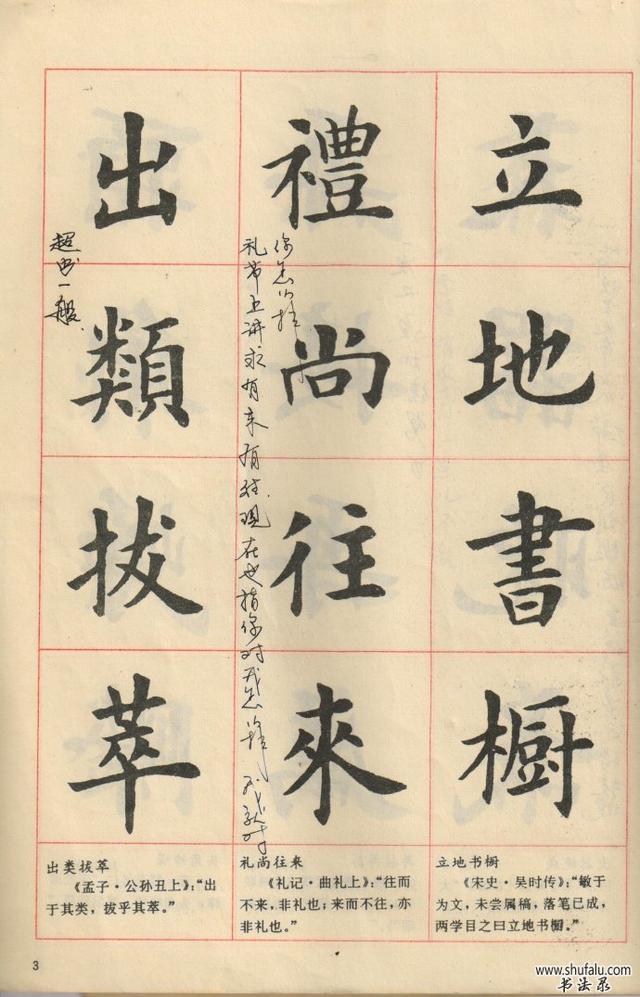 立地書橱
禮尚往來
礼节上讲求有来有往.现在也指你对我怎样 我就对
你怎么样
出類拔萃
超出一般
立地书橱
《宋史·吴时传》：“敏于
为文，未尝属稿，落笔已成，
两学目之曰立地书橱。”
礼尚往来
《礼记·曲礼上》：“往而
不来，非礼也；来而不往，亦
非礼也。”
出类拔萃
《孟子·公孙丑上》：“出
于其类，拔乎其萃。”
3
www.shufalu.com
书法录